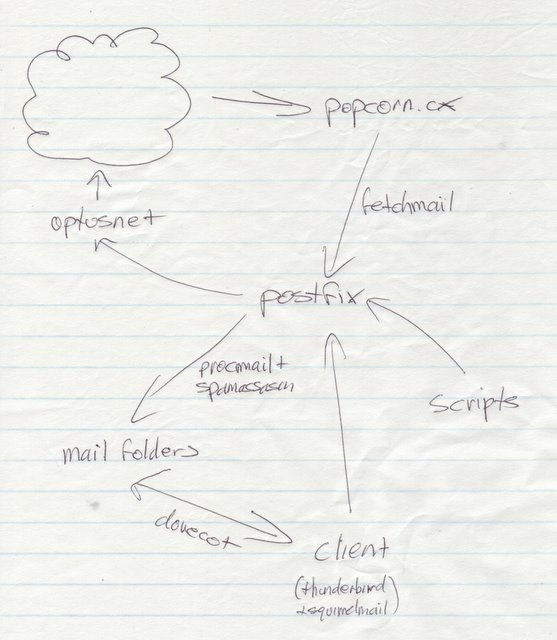 popcorn.cx
optusnet
fetchmail
postfix
procmail +
spamassasin
scripts
mail folders
dovecot
client
(thunderbird
+squirrelmail)